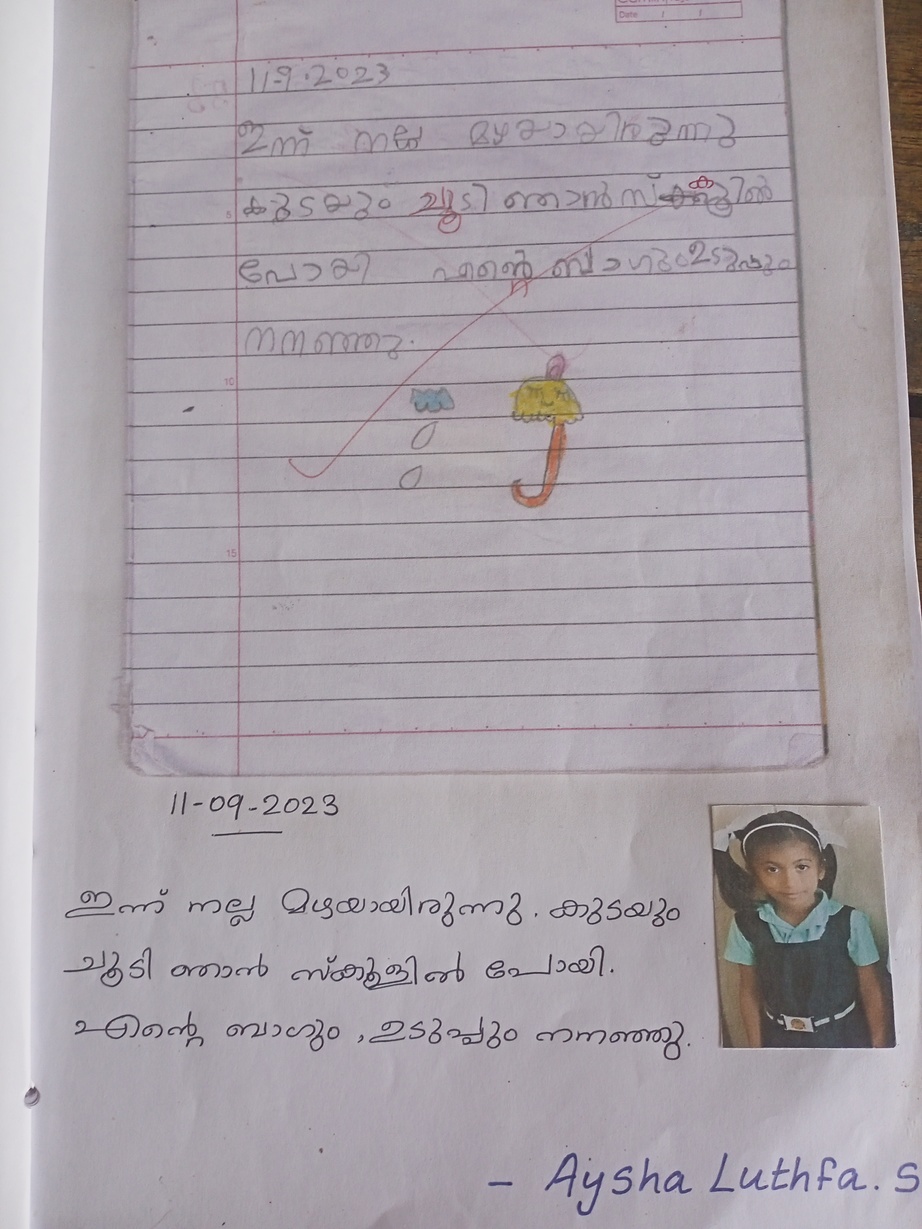 Date / /
11.9.2023
ഇന്ന് നല്ല മഴയായിരുന്നു
കുടയും ചൂടി ഞാൻ സ്കൂളിൽ
പോയി എൻ്റെ ബാഗും ഉടുപ്പും
നനഞ്ഞു.
5
10
15
11-09-2023
ഇന്ന് നല്ല മഴയായിരുന്നു. കുടയും
ചൂടി ഞാൻ സ്കൂളിൽ പോയി.
എൻ്റെ ബാഗും , ഉടുപ്പും നനഞ്ഞു.
- Aysha Luthfa. S